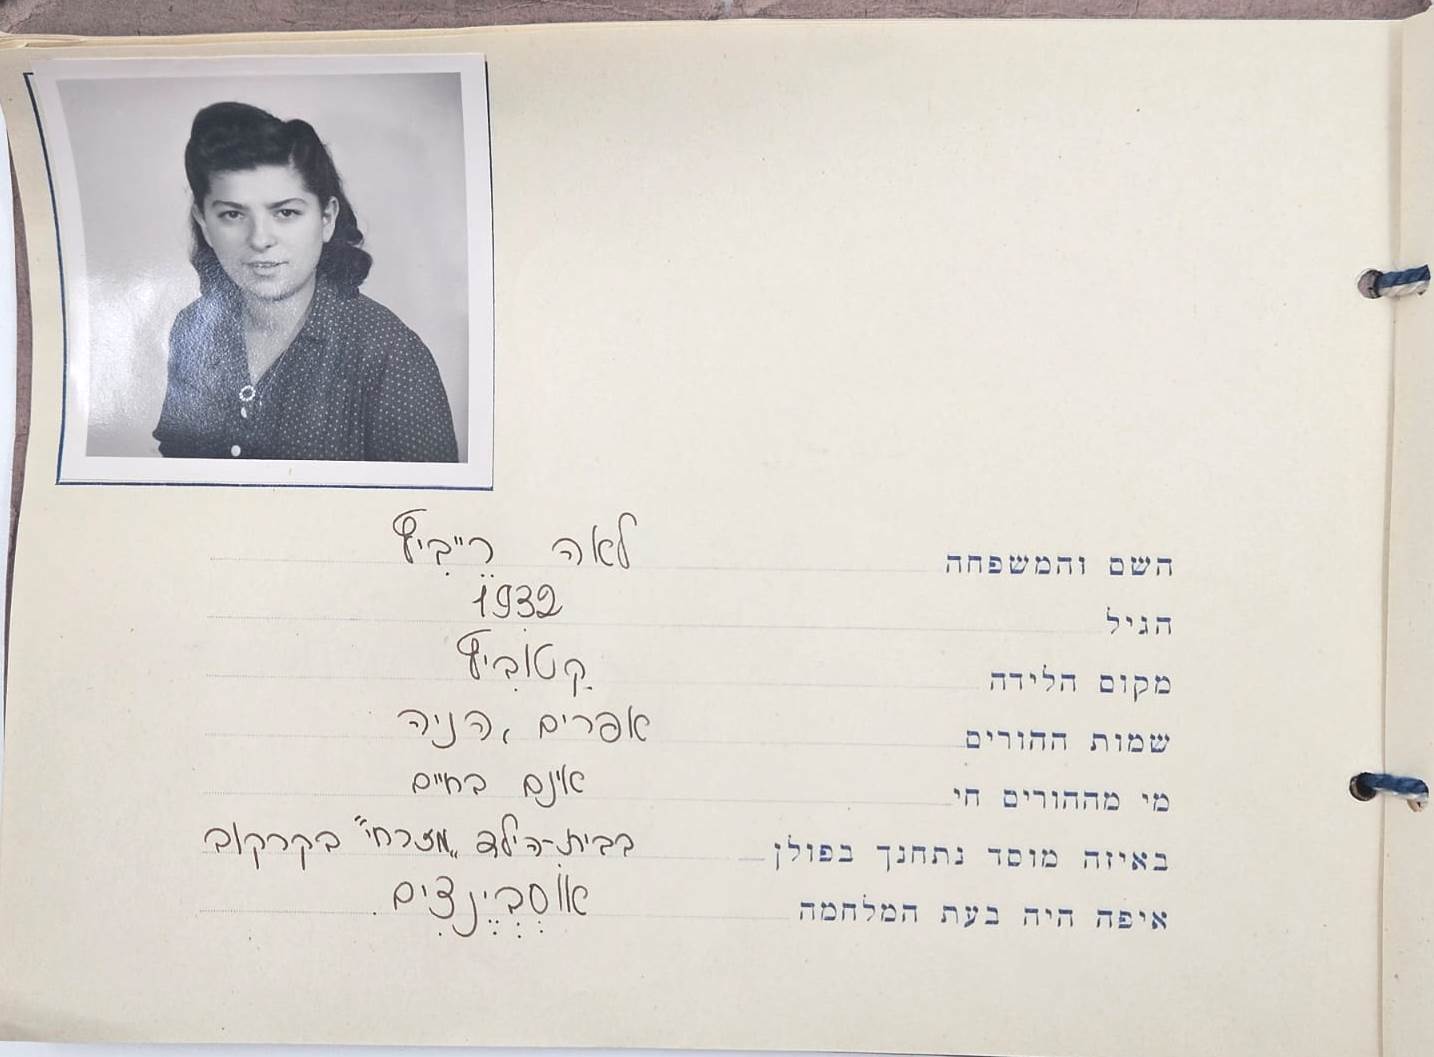 השם והמשפחה לאה רֵייבִיץ
הגיל 1932
מקום הלידה קַטוֹבִיץ
שמות ההורים אפרים, הניה
מי מההורים חי אינם בחיים
באיזה מוסד נתחנך בפולן בבית-הילד "מזרחי" בקרקוב
איפה היה בעת המלחמה אוֹסְבְיֶנצִים.